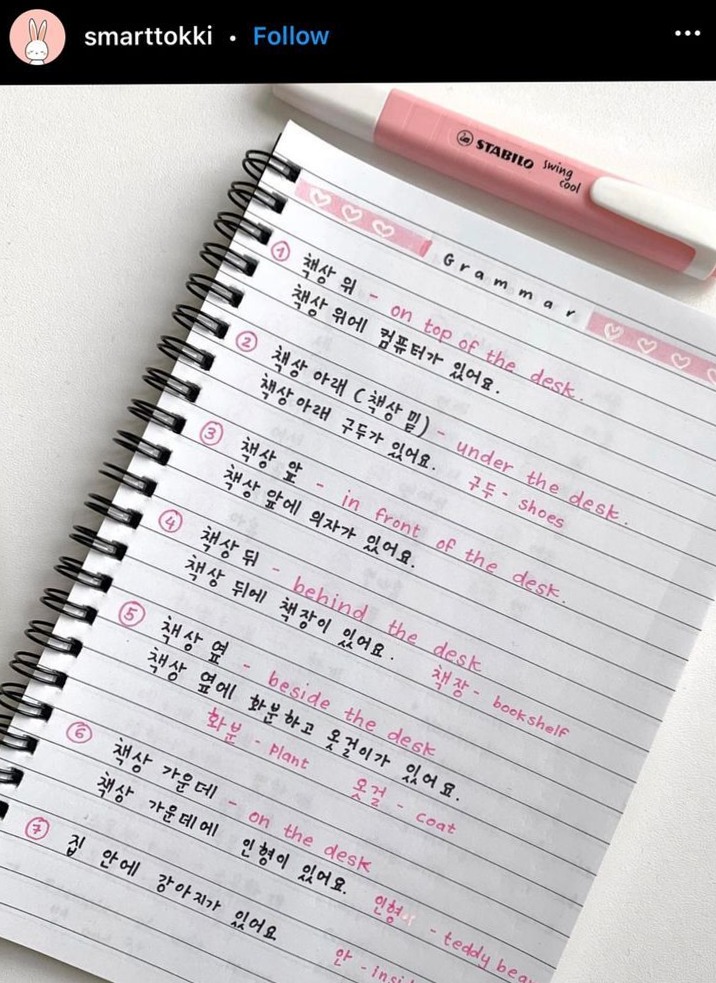 smarttokki • Follow
STABILO swing cool
Grammar
① 책상 위 - on top of the desk.
책상 위에 컴퓨터가 있어요.
② 책상 아래 (책상 밑) - under the desk.
책상 아래 구두가 있어요. 구두 - shoes
③ 책상 앞 - in front of the desk.
책상 앞에 의자가 있어요.
④ 책상 뒤 - behind the desk
책상 뒤에 책장이 있어요. 책장 - bookshelf
⑤ 책상 옆 - beside the desk
책상 옆에 화분하고 옷걸이가 있어요.
화분 - plant 옷걸 - coat
⑥ 책상 가운데 - on the desk
책상 가운데에 인형이 있어요.
인형 - teddy bear
⑦ 집 안에 강아지가 있어요
안 - insi